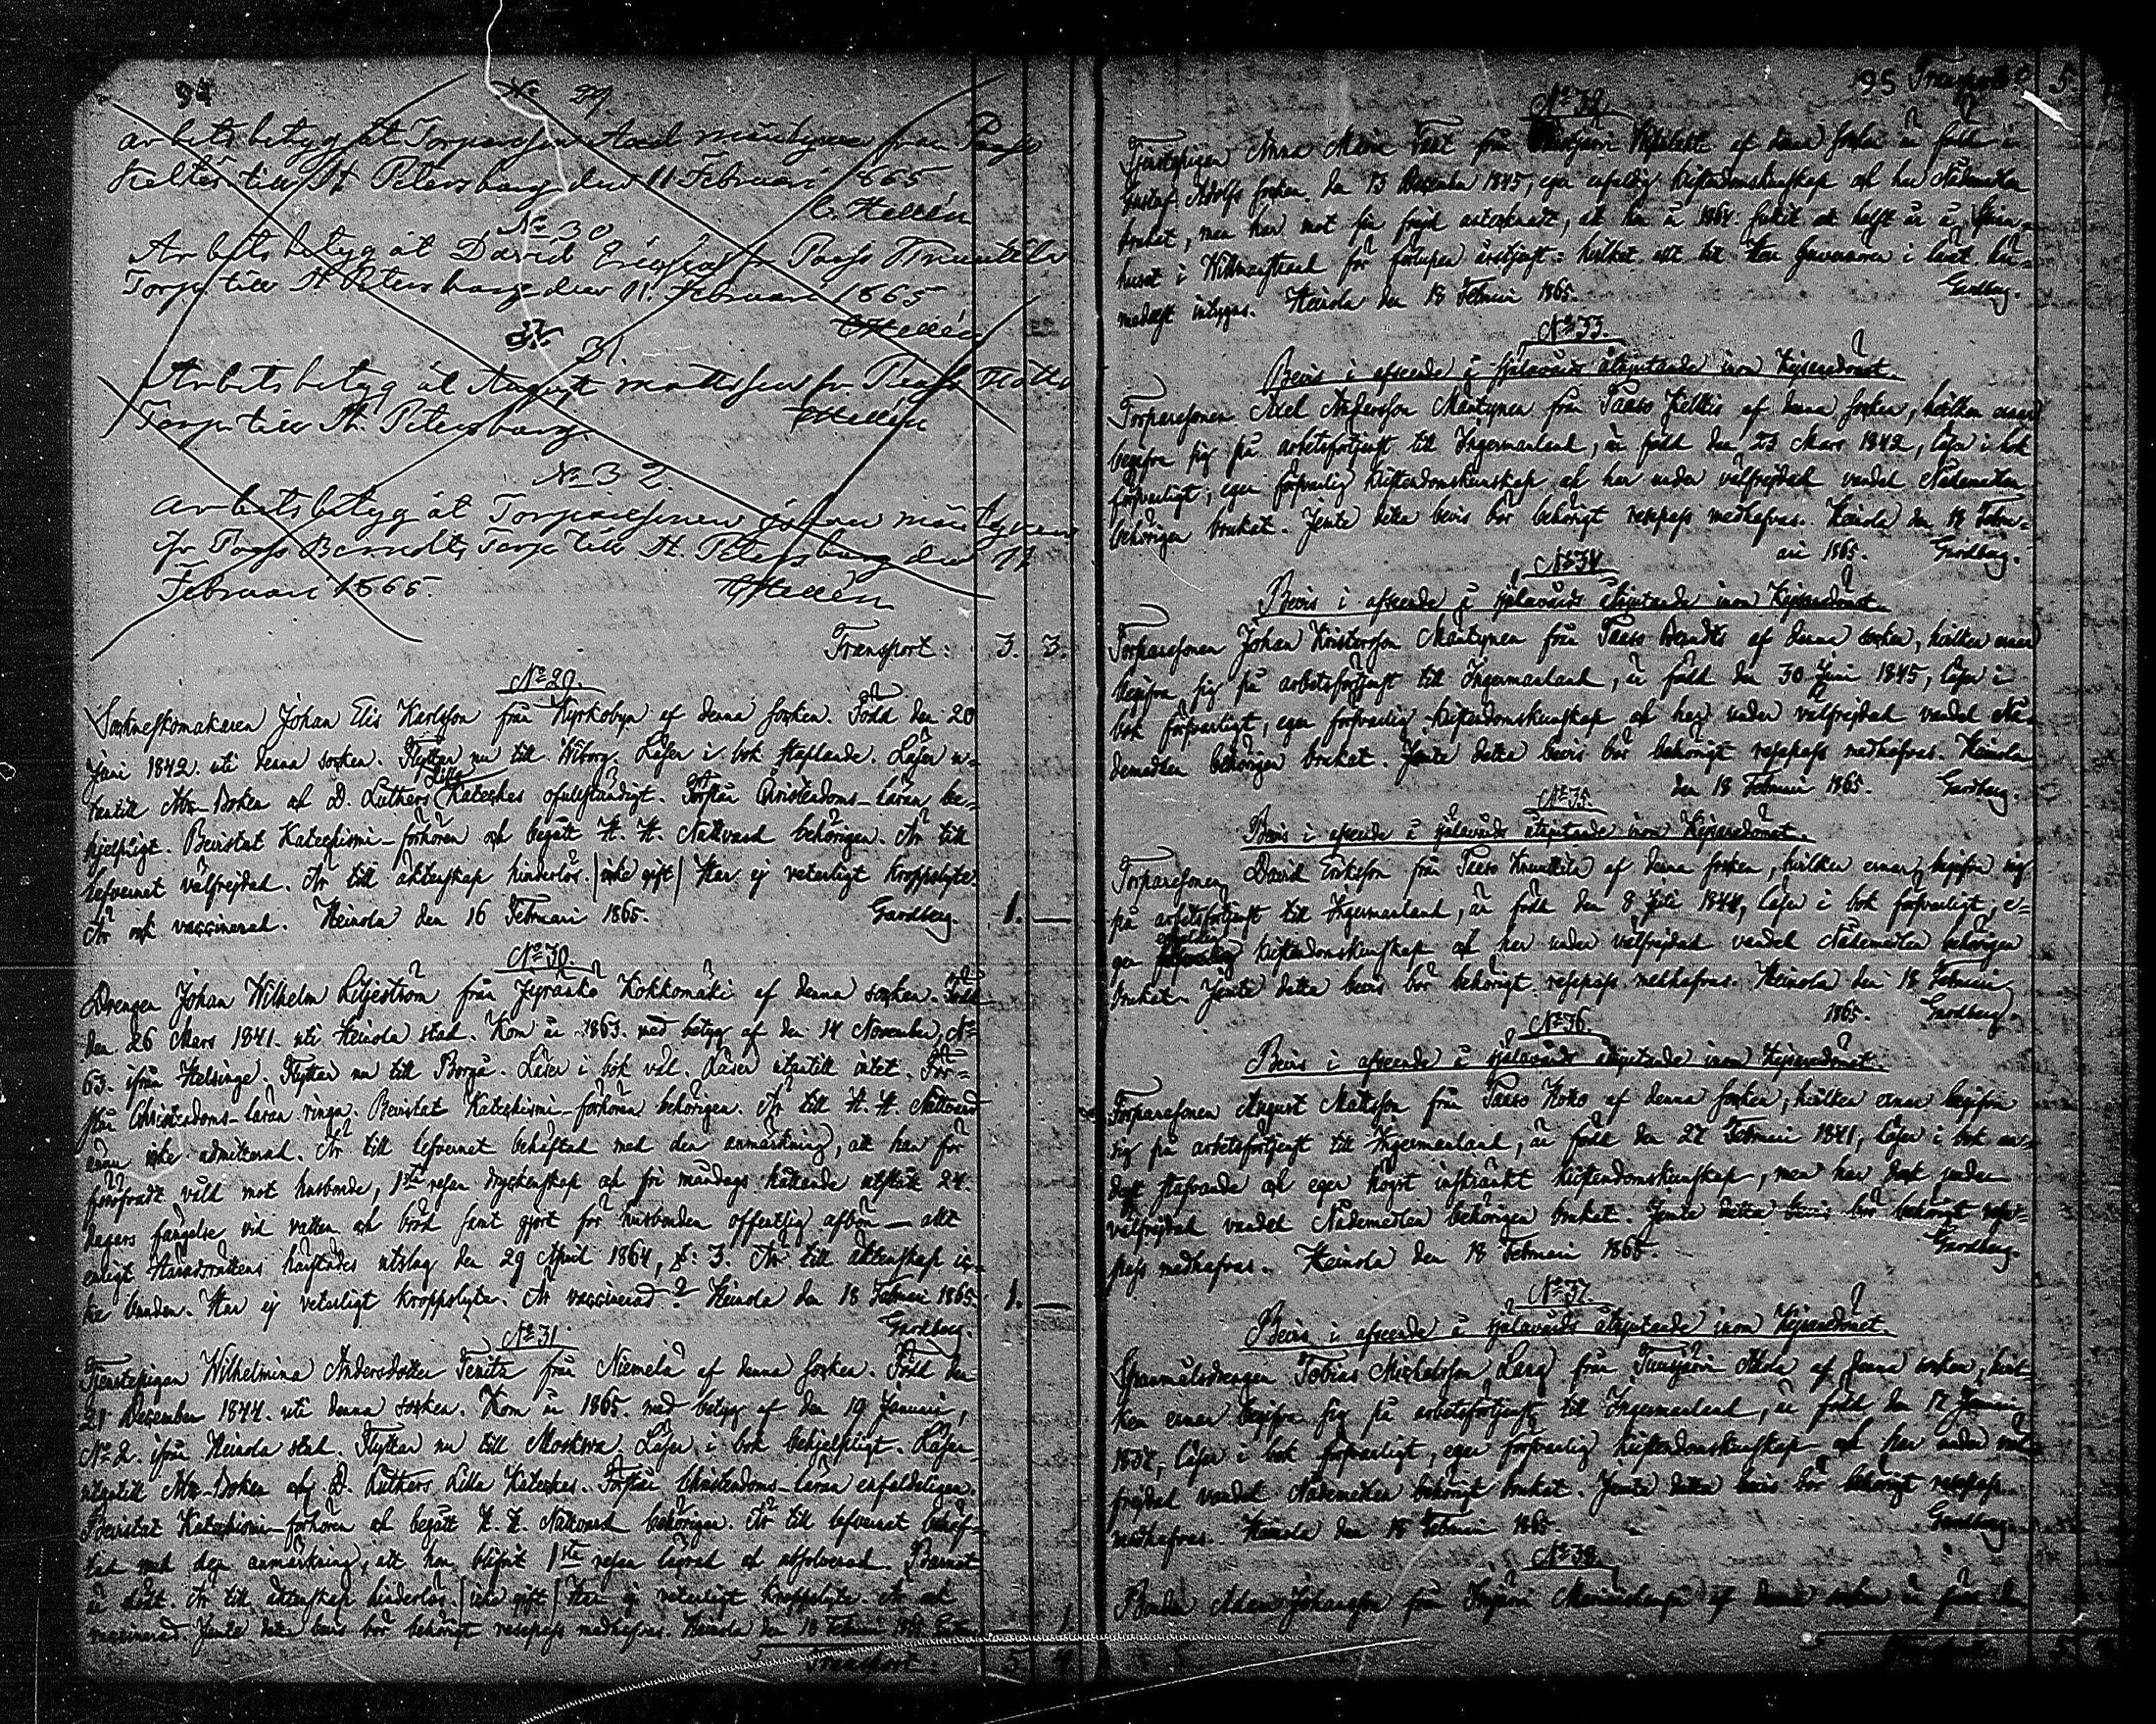 94
No 29
Arbets betyg åt Torparesonen Axel Mäntynen från Paaso
Keltis till St Petersburg den 11 Februari 1865
C. Hellén
No 30
Arbets betyg åt David Ericsson fr Paaso Knuutila
Torp till St Petersburg den 11. Februari 1865
C Hellén
31.
Arbets betyg åt August Mattsson fr. Paaso Kokko
Torp till St. Petersburg.
C Hellén
No 32.
Arbets betyg åt Torparesonen Johan Mäntynen
fr Paaso Berndts Torp till St. Petersburg den 11
Februari 1865.
C Hellén
Transport: 3. 3.
No 29.
Sockneskomakaren Johan Elis Karlsson från Kyrkobyn af denna socken. Född den 20
Juni 1842. uti denna socken. Flyttar nu till Wiborg. Läser i bok staflande. Läser u-
tantill Abc-Boken och D. Luthers Lilla Kateches ofullständigt. Förstår Christendoms-läran be-
hjelpligt. Bevistat Katechismi-förhören och begått H. H. Nattvard behörigen. Är till
lefvernet välfrejdad. Är till äktenskap hinderlös. (icke gift) Har ej veterligt kroppslyte.
Är ock vaccinerad. Heinola den 16 Februari 1865. Gardberg. 1. —
No 30.
Drengen Johan Wilhelm Liljeström från Jyränkö Kokkomäki af denna socken. Född
den 26 Mars 1841. uti Heinola stad. Kom år 1863. med betyg af den 14 November, No
63. ifrån Helsinge. Flyttar nu till Borgå. Läser i bok väl. Läser utantill intet. För-
står Christendoms-läran ringa. Bevistat Katechismi-förhören behörigen. Är till H. H. Nattvard
ännu icke admitterad. Är till lefvernet behäftad med den anmärkning, att han för
föröfvadt våld mot husbonde, 1sta resan dryckenskap och fri måndags hållande utstått 24.
dagars fängelse vid vatten och bröd samt gjort för husbonden offentlig afbön — allt
enligt Häradsrättens härstädes utslag den 29 April 1864, §: 3. Är till äktenskap ic-
ke bunden. Har ej veterligt kroppslyte. Är vaccinerad? Heinola den 18 Februari 1865. 1. —
Gardberg.
No 31.
Tjenstepigan Wilhelmina Andersdotter Tenitz från Niemelä af denna socken. Född den
21 December 1844. uti denna socken. Kom år 1865. med betyg af den 19 Januari,
No 2. ifrån Heinola stad. Flyttar nu till Moskwa. Läser i bok behjelpligt. Läser
utantill Abc-Boken och D. Luthers Lilla Kateches. Förstår Christendoms-läran enfaldeligen.
Bevistat Katechismi-förhören och begått H. H. Nattvard behörigen. Är till lefvernet behäf-
tad med den anmärkning, att hon blifvit 1sta resan lägrad och absolverad. Barnet
är dödt. Är till äktenskap hinderlös. (icke gift) Har ej veterligt kroppslyte. Är ock
vaccinerad. Jemte detta bevis bör behörigt resepass medhafvas. Heinola den 18 Februari 1865.
Transport: 5 4
95 Transport 5
No 32.
Tjenstepigan Anna Maria från af denna socken är född i
Gustaf Adolfs socken den 13 December 1845, eger enfaldig kristendomskunskap och har Nådemedlen
brukat, men har mot sin frejd antecknadt, at hon år 1864 suttit ett halft år å Spinn-
huset i Willmanstrand för förlupen årstjenst: hvilket allt till Herr Guvernören i länet här-
medelst intygas. Heinola den 18 Februari 1865. Gardberg.
No 33.
Bevis i afseende å själavårds åtnjutande inom Kejsaredömet.
Torparesonen Axel Andersson Mäntynen från Paaso Keltis af denna socken, hvilken ernar
begifva sig på arbetsförtjenst till Ingermanland, är född den 23 Mars 1842, läser i bok
försvarligt, eger försvarlig kristendomskunskap och har under välfrejdad vandel Nådemedlen
behörigen brukat. Jemte detta bevis bör behörigt resepass medhafvas. Heinola den 18 Febru-
ari 1865. Gardberg.
No 34.
Bevis i afseende å själavårds åtnjutande inom Kejsaredömet.
Torparesonen Johan Kristersson Mäntynen från Paaso Berndts af denna socken, hvilken ernar
begifva sig på arbetsförtjenst till Ingermanland, är född den 30 Juni 1845, läser i
bok försvarligt, eger försvarlig kristendomskunskap och har under välfrejdad vandel Nå-
demedlen behörigen brukat. Jemte detta bevis bör behörigt resepass medhafvas. Heinola
den 18 Februari 1865. Gardberg.
No 35.
Bevis i afseende å själavårds åtnjutande inom Kejsaredömet.
Torparesonen David Eriksson från Paaso Knuuttila af denna socken, hvilken ernar begifva sig
på arbetsförtjenst till Ingermanland, är född den 8 Juli 1844, läser i bok försvarligt, e-
ger enfaldig kristendomskunskap och har under välfrejdad vandel Nådemedlen behörigen
brukat. Jemte detta bevis bör behörigt resepass medhafvas. Heinola den 18 Februari
1865. Gardberg.
No 36.
Bevis i afseende å själavårds åtnjutande inom Kejsaredömet.
Torparesonen August Mattsson från Paaso Kokko af denna socken, hvilken ernar begifva
sig på arbetsförtjenst till Ingermanland, är född den 27 Februari 1841, läser i bok en-
dast stafvande och eger högst inskränkt kristendomskunskap, men har dock under
välfrejdad vandel Nådemedlen behörigen brukat. Jemte detta bevis bör behörigt rese-
pass medhafvas. Heinola den 18 Februari 1865. Gardberg.
No 37.
Bevis i afseende å själavårds åtnjutande inom Kejsaredömet.
Spannmålsdrengen Tobias Michelsson Lang från Tuusjärvi af denna socken, hvil-
ken ernar begifva sig på arbetsförtjenst till Ingermanland, är född den 17 Januari
1837, läser i bok försvarligt, eger försvarlig kristendomskunskap och har under väl-
frejdad vandel Nådemedlen behörigt brukat. Jemte detta bevis bör behörigt resepass
medhafvas. Heinola den 18 Februari 1865. Gardberg.
No 38.
Bonden Adam Johansson från af denna socken är född den
Transport 5